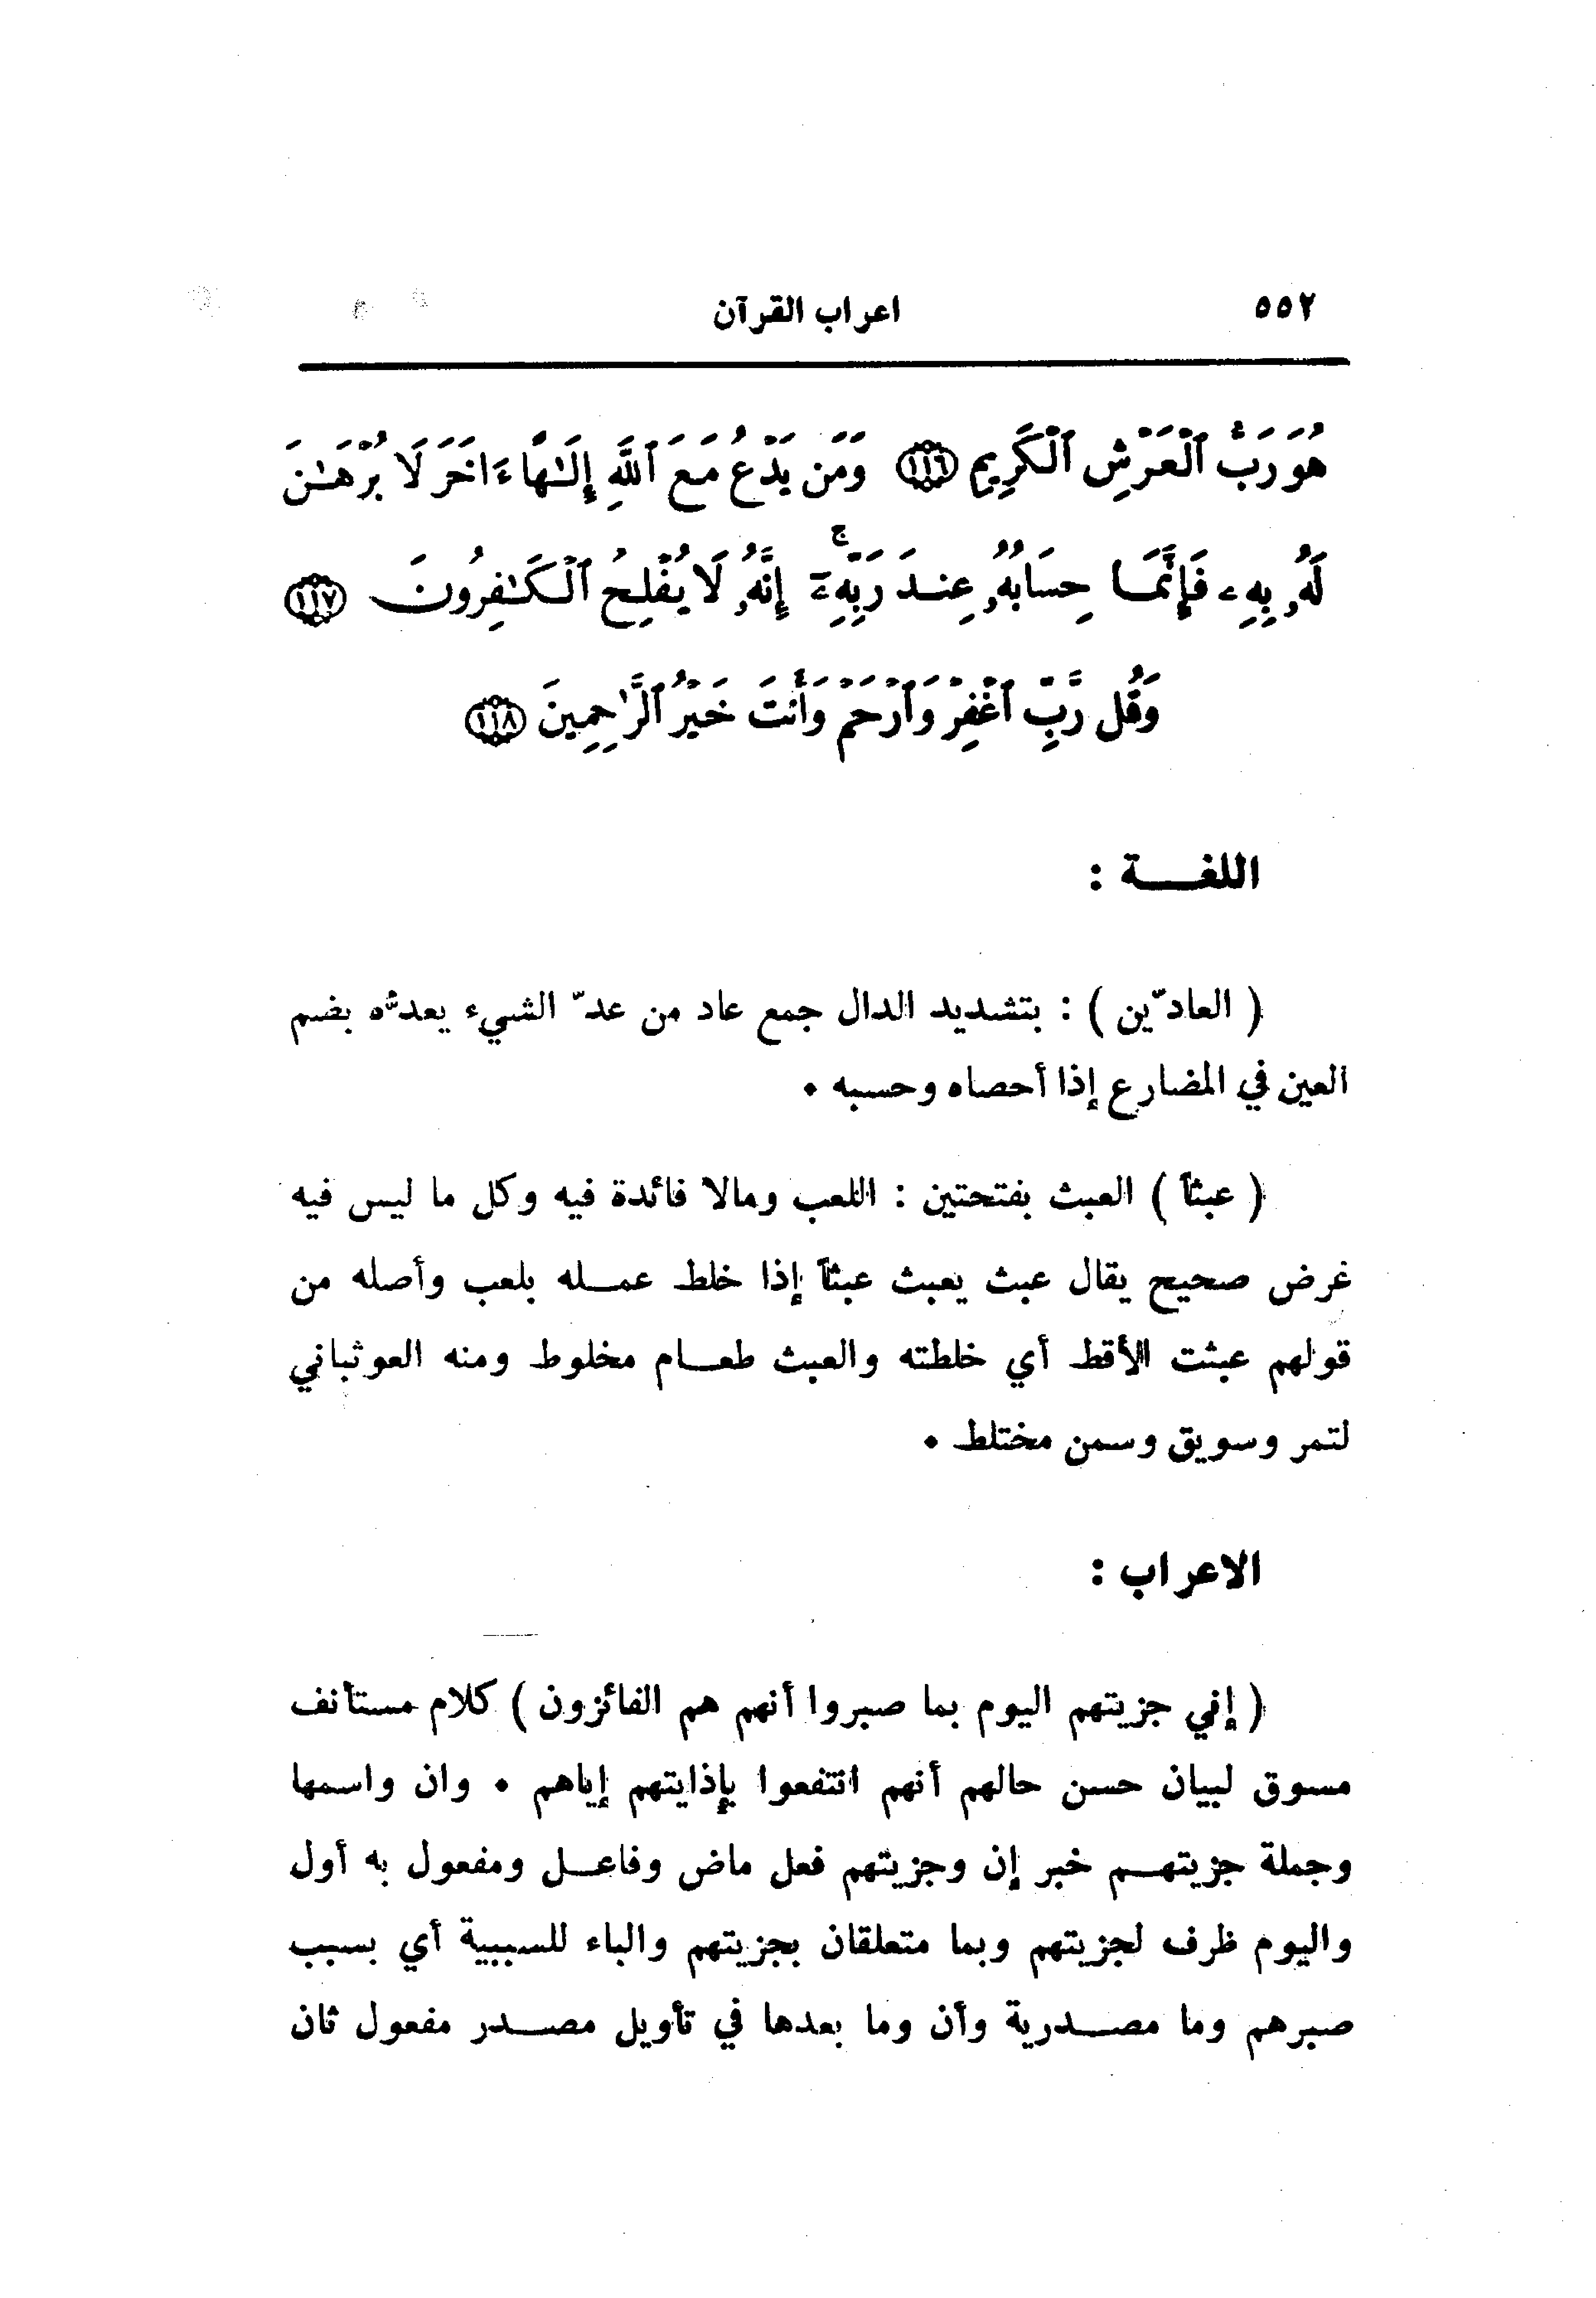 ٥٥٢ اعراب القرآن
هُوَ رَبُّ ٱلْعَرْشِ ٱلْكَرِيمِ ﴿١١٦﴾ وَمَن يَدْعُ مَعَ ٱللَّهِ إِلَـٰهًا ءَاخَرَ لَا بُرْهَـٰنَ
لَهُۥ بِهِۦ فَإِنَّمَا حِسَابُهُۥ عِندَ رَبِّهِۦٓ ۚ إِنَّهُۥ لَا يُفْلِحُ ٱلْكَـٰفِرُونَ ﴿١١٧﴾
وَقُل رَّبِّ ٱغْفِرْ وَٱرْحَمْ وَأَنتَ خَيْرُ ٱلرَّٰحِمِينَ ﴿١١٨﴾
اللغــــة :
( العادّين ) : بتشديد الدال جمع عاد من عدّ الشيء يعدّه بضم
العين في المضارع إذا أحصاه وحسبه .
( عبثاً ) العبث بفتحتين : اللعب ومالا فائدة فيه وكل ما ليس فيه
غرض صحيح يقال عبث يعبث عبثاً إذا خلط عمــله بلعب وأصله من
قولهم عبثت الأقط أي خلطته والعبث طعــام مخلوط ومنه العوثباني
لتمر وسويق وسمن مختلط .
الاعراب :
( إني جزيتهم اليوم بما صبروا أنهم هم الفائزون ) كلام مستأنف
مسوق لبيان حسن حالهم أنهم انتفعوا بإذايتهم إياهم . وان واسمها
وجملة جزيتهــم خبر إن وجزيتهم فعل ماض وفاعــل ومفعول به أول
واليوم ظرف لجزيتهم وبما متعلقان بجزيتهم والباء للسببية أي بسبب
صبرهم وما مصــدرية وأن وما بعدها في تأويل مصــدر مفعول ثان